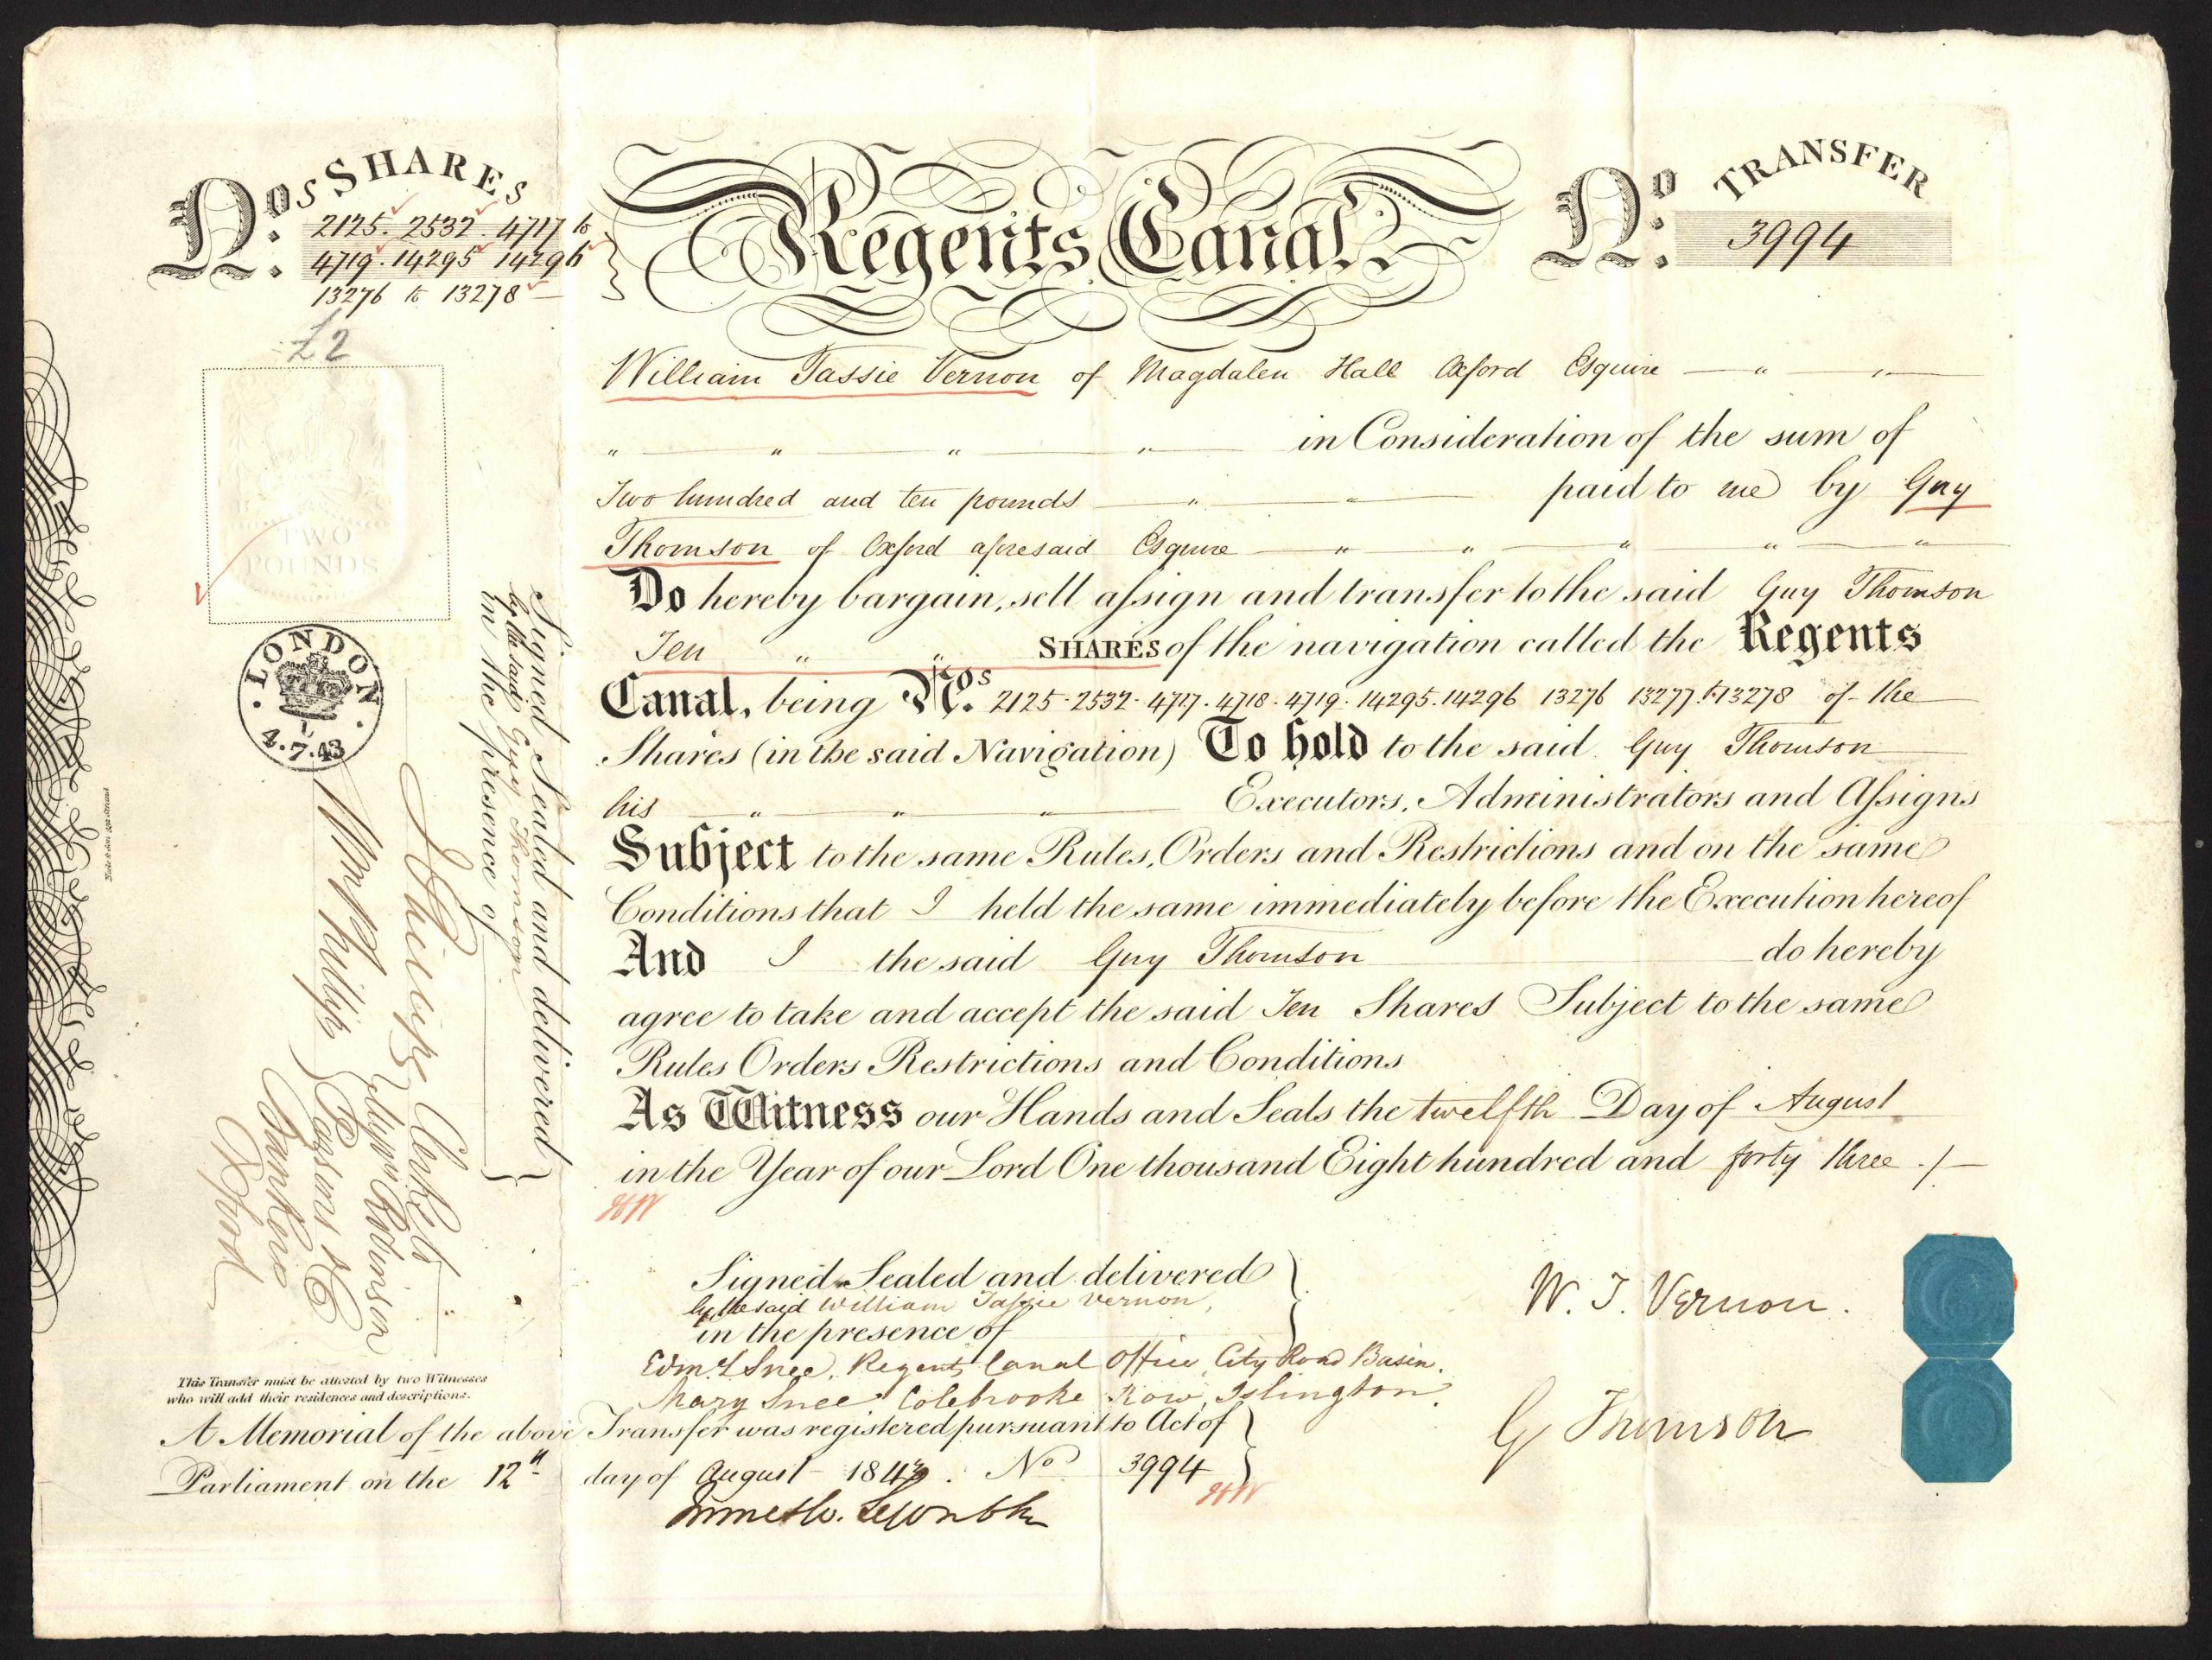 Nos SHARES
2125. 2532. 4717 to
4719. 14295 14296
13276 to 13278
£2
TWO
POUNDS
LONDON
4.7.43
Regents Canal.
No. TRANSFER
3994
William Tassie Vernon of Magdalen Hall Oxford Esquire
in Consideration of the sum of
Two hundred and ten pounds paid to me by Guy
Thomson of Oxford aforesaid Esquire
Do hereby bargain, sell assign and transfer to the said Guy Thomson
Ten SHARES of the navigation called the Regents
Canal, being Nos. 2125-2532-4717. 4718. 4719. 14295. 14296 13276 13277. & 13278 of the
Shares (in the said Navigation) To hold to the said Guy Thomson
his Executors, Administrators and Assigns
Subject to the same Rules, Orders and Restrictions and on the same
Conditions that I held the same immediately before the Execution hereof
And I the said Guy Thomson do hereby
agree to take and accept the said Ten Shares Subject to the same
Rules Orders Restrictions and Conditions
As Witness our Hands and Seals the twelfth Day of August
in the Year of our Lord One thousand Eight hundred and forty three
Signed Sealed and delivered
by the said William Tassie Vernon,
in the presence of
Edmd Snee, Regents Canal Office, City Road Basin.
Mary Snee Colebrooke Row, Islington.
W. T. Vernon.
G Thomson
Signed Sealed and delivered
by the said Guy Thomson
in the presence of
Clerks to
Robinson
Parsons & Co
Bankers
Oxford
This Transfer must be attested by two Witnesses
who will add their residences and descriptions.
A Memorial of the above Transfer was registered pursuant to Act of
Parliament on the 12th day of August 1843. No 3994